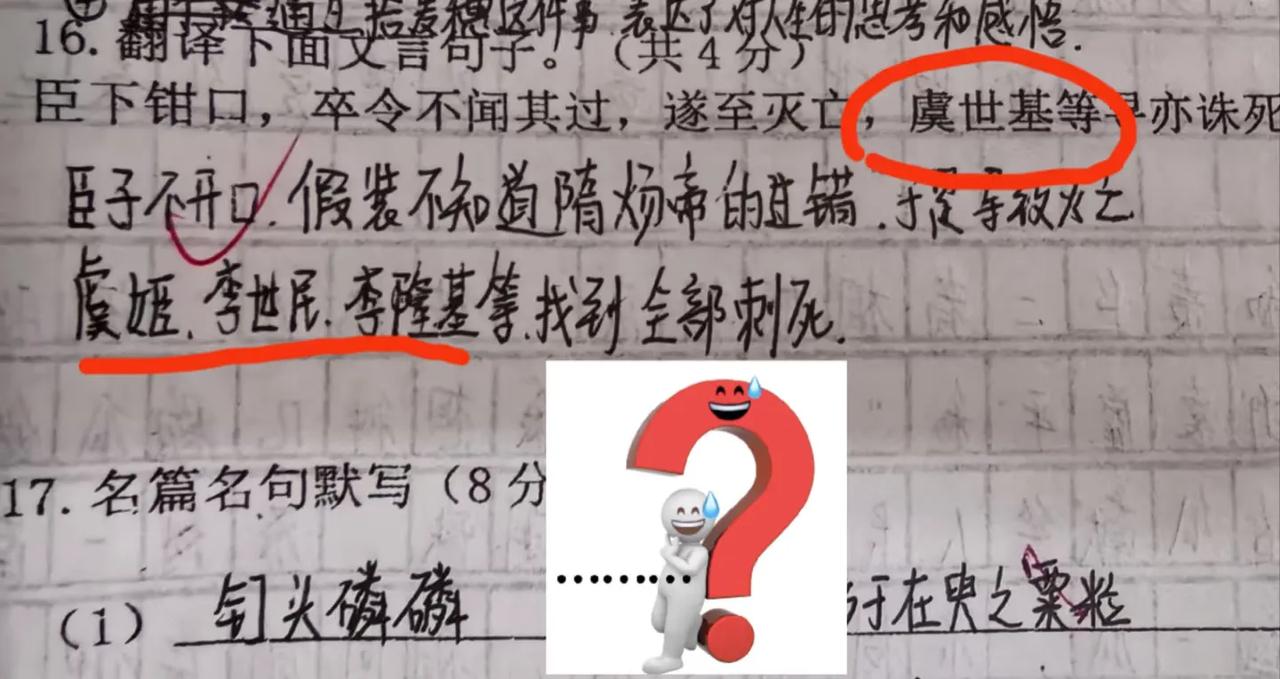 拾麦穗这件事,表达了对人生的思考和感悟.
16. 翻译下面文言句子。(共4分)
臣下钳口,卒令不闻其过,遂至灭亡,虞世基等寻亦诛死
臣子不开口.假装不知道隋炀帝的过错.于是导致灭亡
虞姬、李世民.李隆基等.找到全部刺死.
17. 名篇名句默写(8分
(1) 钉头磷磷 于在庾之粟粒